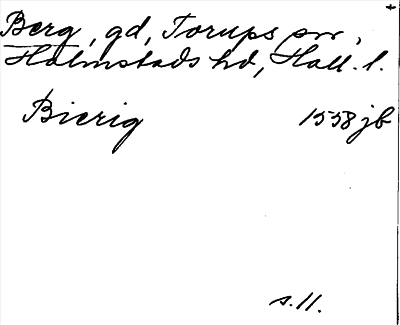 Berg, gd, Torups sn,
Halmstads hd, Hall. l.
Bierig 1558 jb
s. 11.